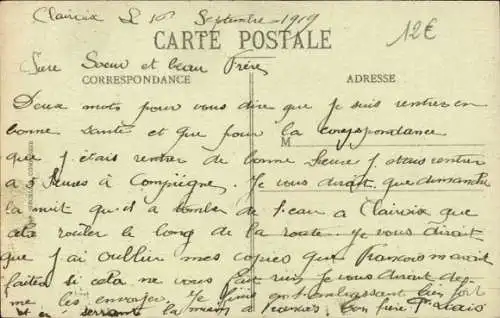 Clairoix L 10 Septembre 1919
12€
CARTE POSTALE
Soeur et beau Frère
CORRESPONDANCE
ADRESSE
Deux mots pour vous dire que je suis rentrer en
bonne santé et que pour la correspondance
M
que j étais rentrer de bonne heure j rentrer
a 5 heures à Compiègne. Je vous dirait que
la nuit qu il a tomber de l eau a Clairoix que
rouler le long de la route. Je vous dirait
que j ai oublier mes copies que François m avait
faites si cela ne vous fait rien je vous dirait de
me les envoyer. Je finis en embrassant bien fort
et en serrant la main a François. bon frère